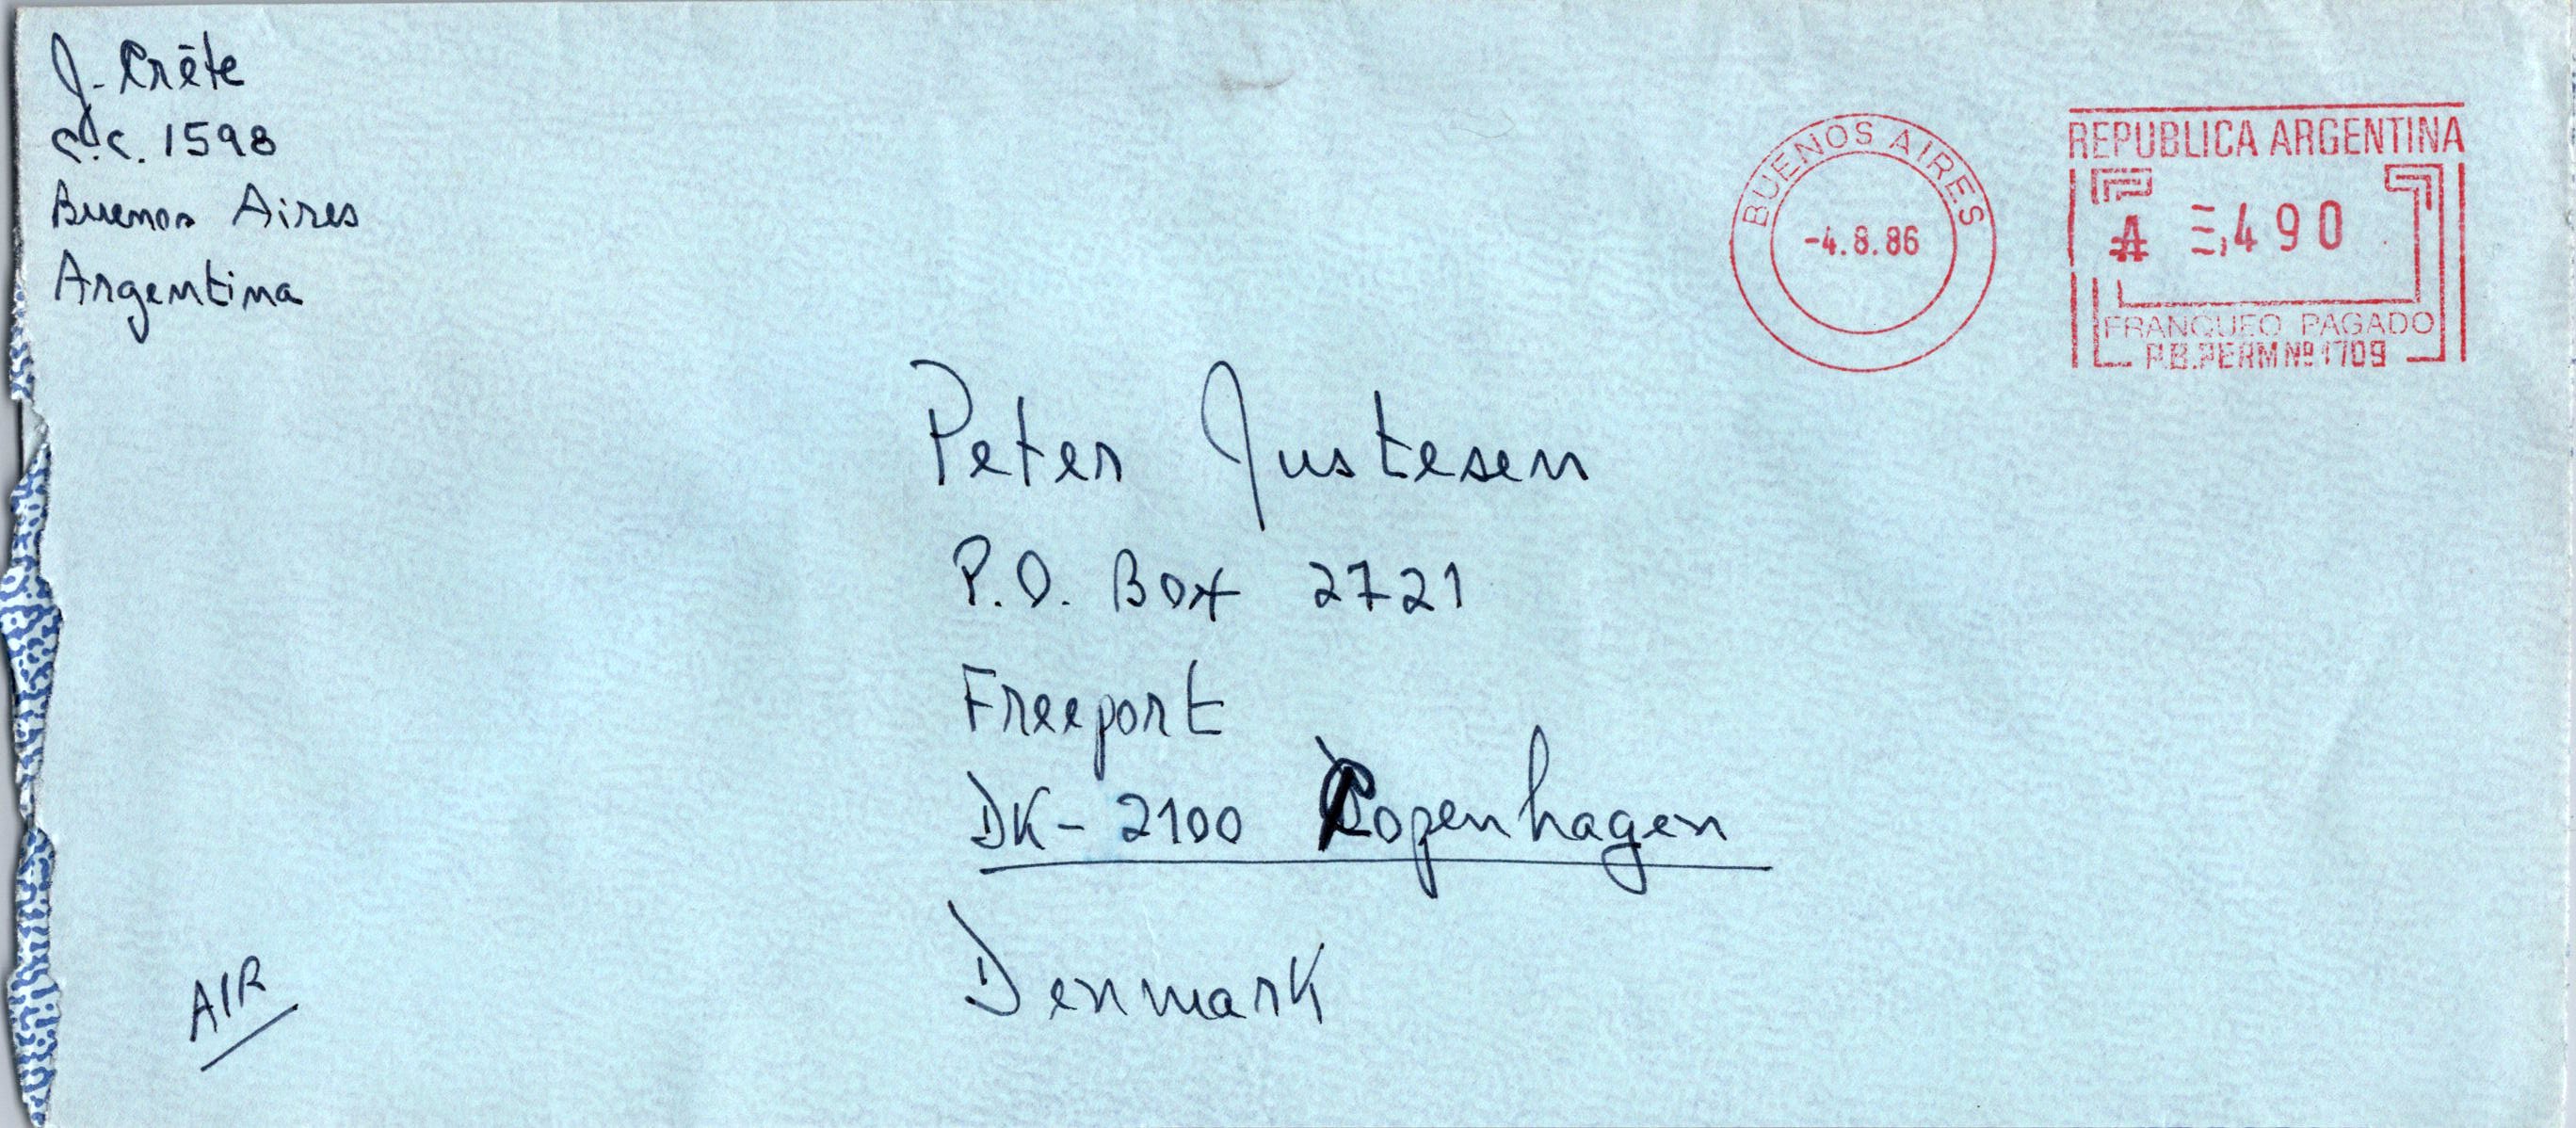 J. Crête
c.c. 1598
Buenos Aires
Argentina
BUENOS AIRES
-4.8.86
REPUBLICA ARGENTINA
₳ ,490
FRANQUEO PAGADO
P.B. PERM Nº 1709
Peter Justesen
P.O. Box 2721
Freeport
DK - 2100 Copenhagen
Denmark
AIR